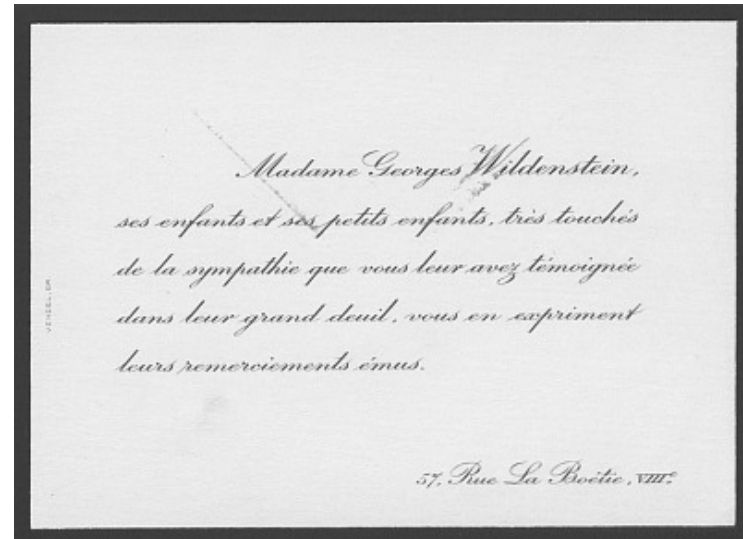 Madame Georges Wildenstein,
ses enfants et ses petits enfants, très touchés
de la sympathie que vous leur avez témoignée
dans leur grand deuil, vous en expriment
leurs remerciements émus.
57, Rue La Boëtie, VIIIe.